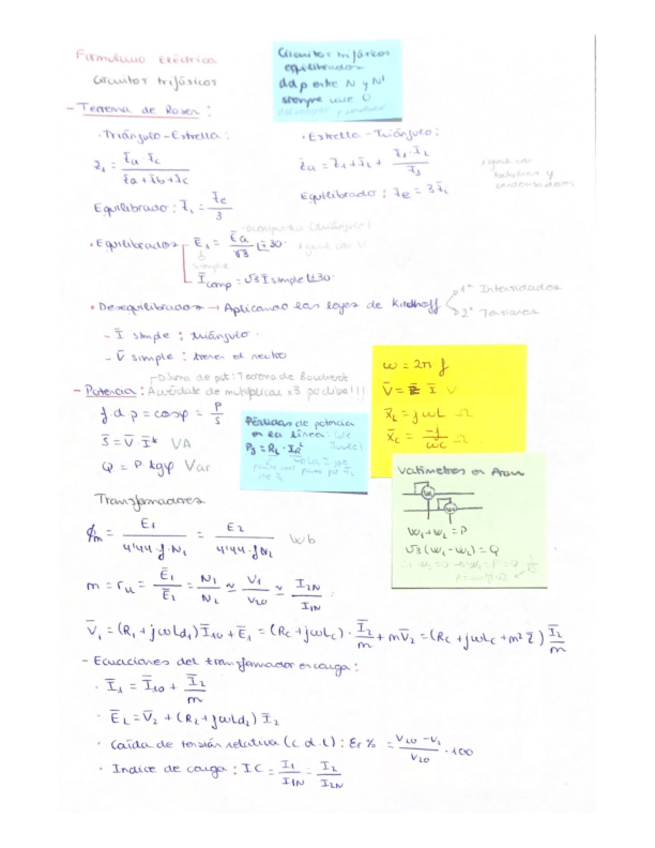 Formulario Eléctrica
Circuitos trifásicos
Circuitos trifásicos
equilibrados
ddp entre N y N'
siempre vale 0
- Teorema de Rosen :
· Triángulo-Estrella :
Z̄₁ = (Z̄a · Z̄c) / (Z̄a + Z̄b + Z̄c)
Equilibrado : Z̄₁ = Z̄c / 3
· Estrella-Triángulo :
Z̄a = Z̄₁ + Z̄₂ + (Z̄₁ · Z̄₂) / Z̄₃
Equilibrado : Z̄c = 3Z̄₁
bobinas y
condensadores
· Equilibrados
Ē₁ = Ēa / √3 ∟±30°
simple
Īcomp = √3 Ī simple ∟±30°
· Desequilibrados → Aplicando las leyes de Kirchhoff
1º Intensidades
2º Tensiones
- Ī simple : triángulo
- V̄ simple : tienen el neutro
Teorema de Boucherot
- Potencia : Acuérdate de multiplicar x3 !!!
f.d.p = cosφ = P / S
S̄ = V̄ · Ī* VA
Q = P · tgφ Var
Pérdidas de potencia
en la línea:
Pj = RL · IL²
ω = 2π f
V̄ = Z̄ · Ī V
X̄L = jωL Ω
X̄c = -j / ωC Ω
Vatímetros en Aron
W₁
W₂
W₁ + W₂ = P
√3 (W₁ - W₂) = Q
Transformadores
ϕm = E₁ / (4'44 · f · N₁) = E₂ / (4'44 · f · N₂) Wb
m = ru = Ē₁ / Ē₂ = N₁ / N₂ ≃ V₁ / V₂₀ ≃ I₂N / I₁N
V̄₁ = (R₁ + jωLd₁) Ī₁₀ + Ē₁ = (Rc + jωLc) · Ī₂ / m + mV̄₂ = (Rc + jωLc + m² Z̄) Ī₂ / m
- Ecuaciones del transformador en carga :
· Ī₁ = Ī₁₀ + Ī₂ / m
· Ē₂ = V̄₂ + (R₂ + jωLd₂) Ī₂
· Caída de tensión relativa (c.d.t) : Er % = (V₂₀ - V₂) / V₂₀ · 100
· Indice de carga : IC = I₁ / I₁N = I₂ / I₂N